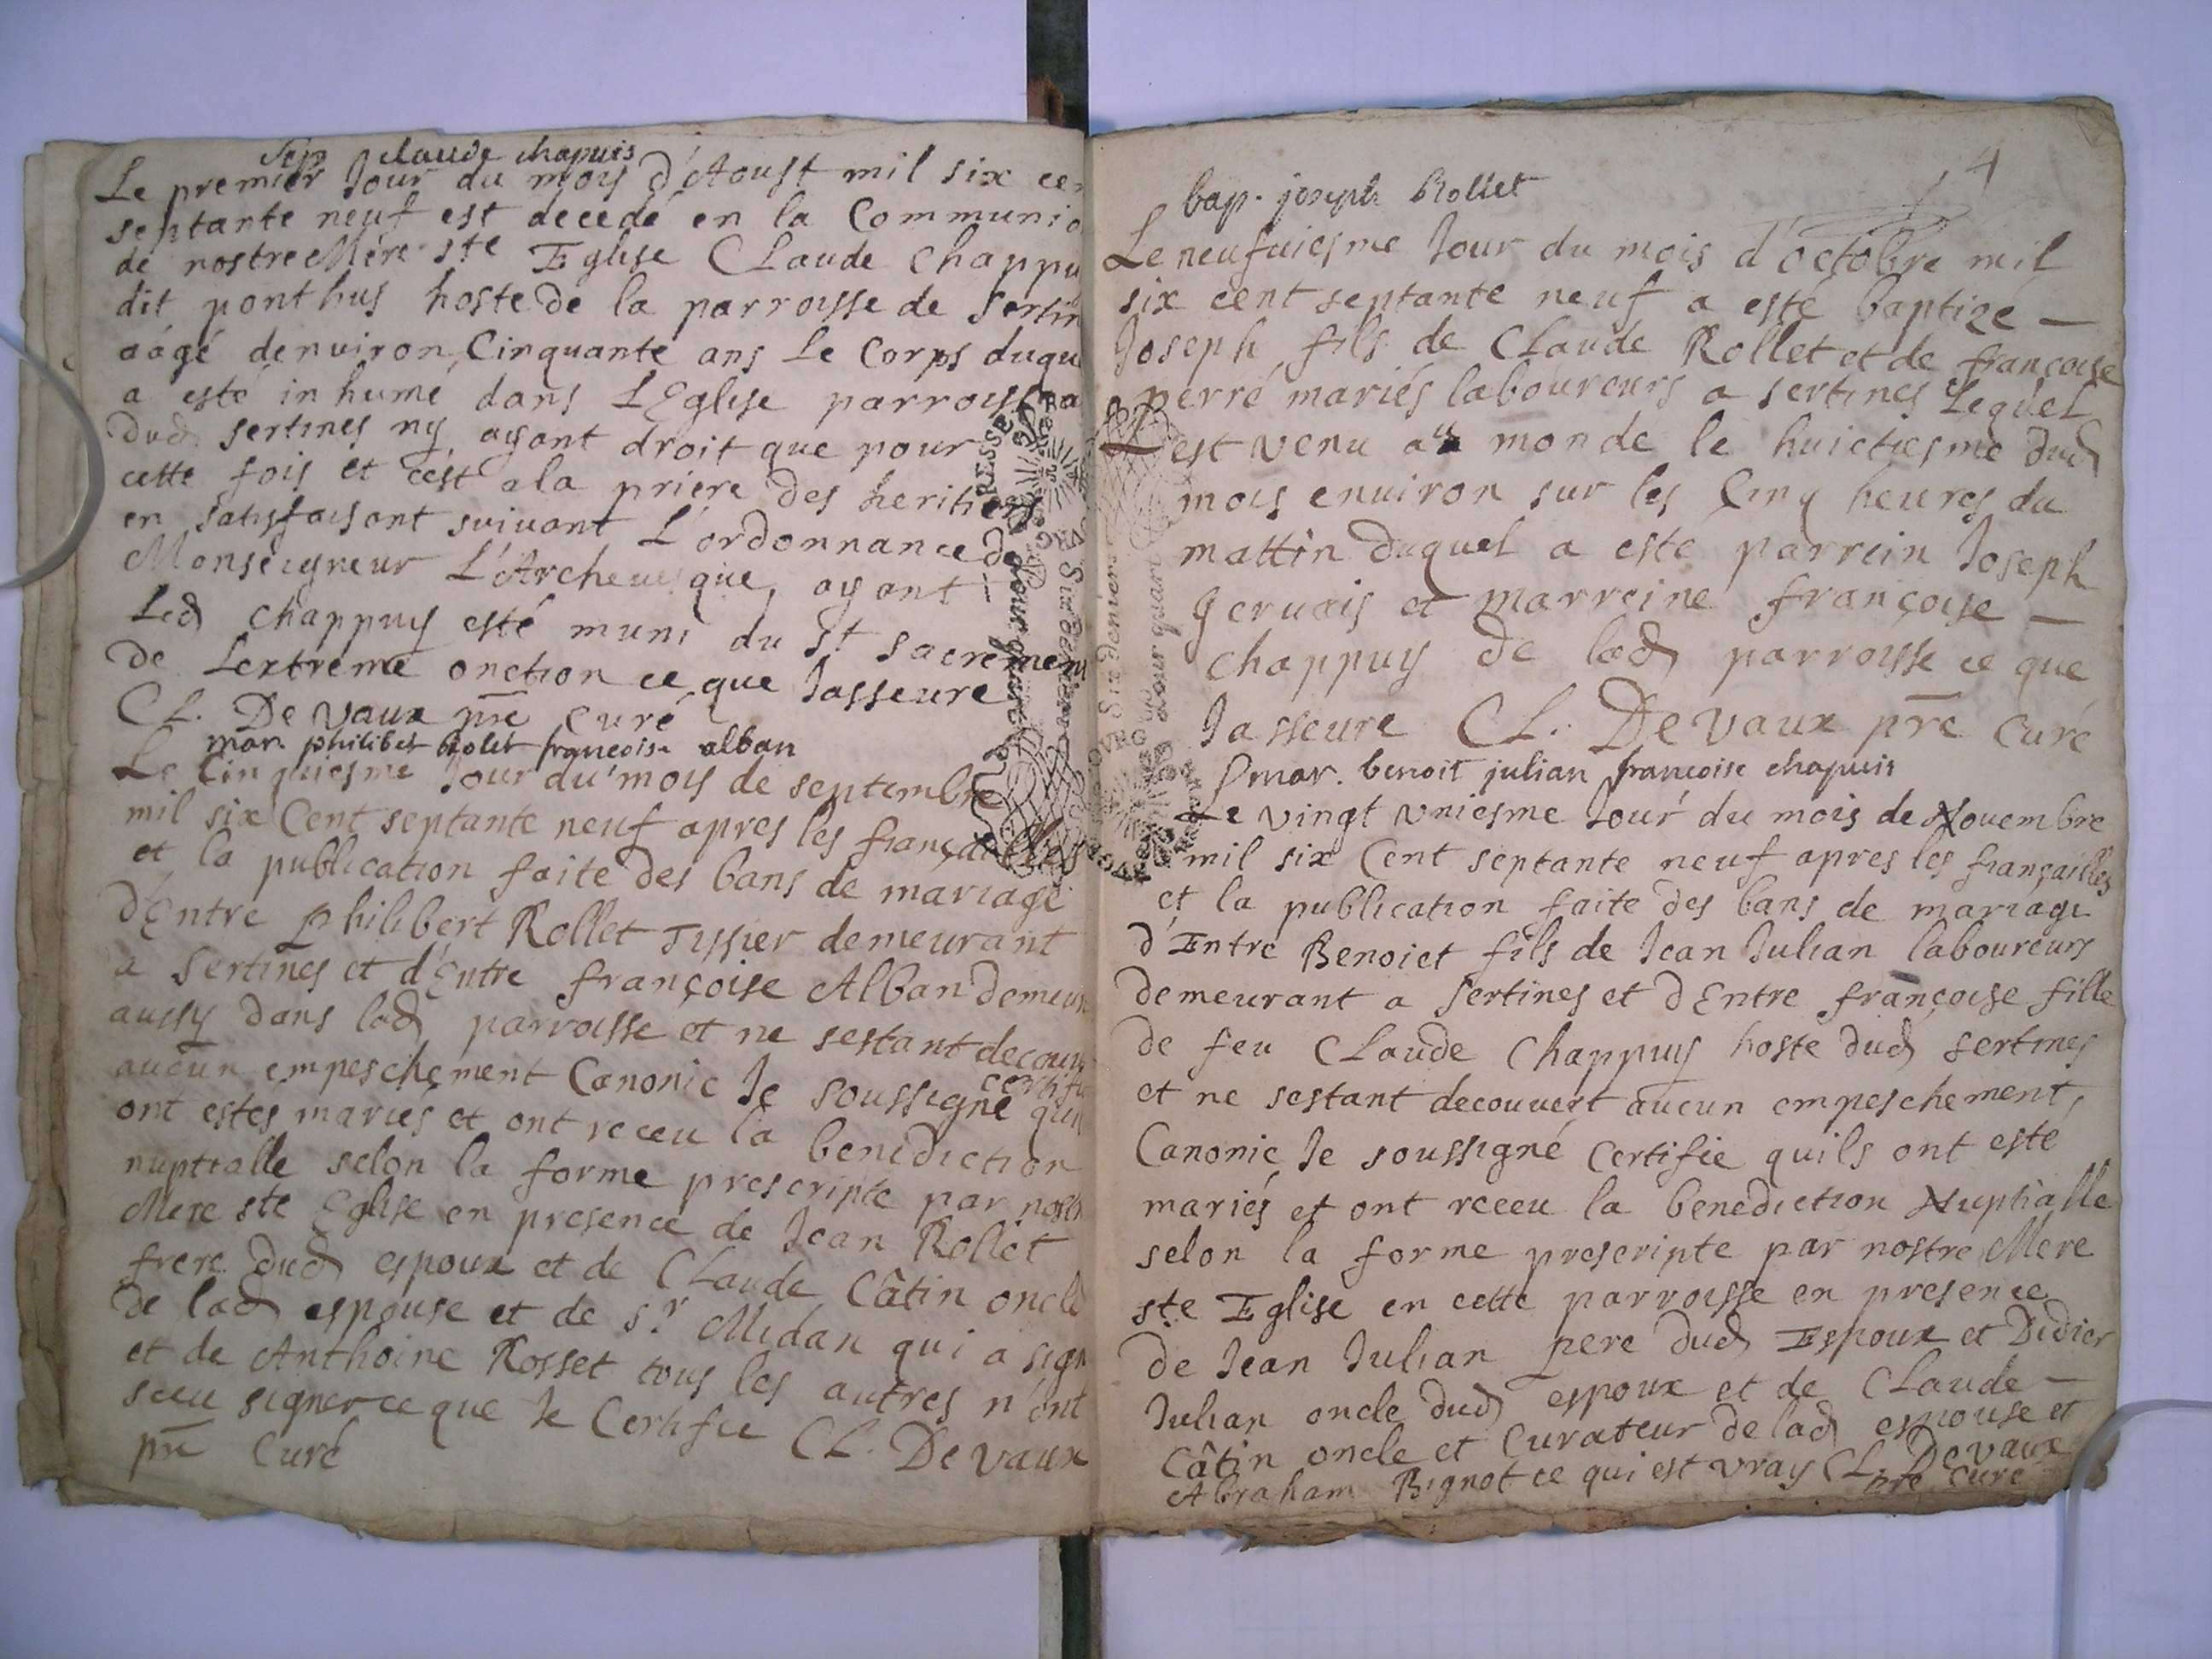 Sep claude chapuis
Le premier Jour du mois d'Aoust mil six ce
septante neuf est decedé en la Communio
de nostre Mere ste Eglise CLaude Chappu
dit ponthus hoste de la parroisse de Sertin
aàgé denuiron Cinquante ans Le Corps duqu
a esté inhumé dans LEglise parroissia
dud sertines ny ayant droit que pour
cette fois et cest ala priere des heritiers
en satisfaisant suivant L'ordonnance de
Monseigneur L'Archeuesque, ayant
Led Chappuy esté muni du St sacremen
de Lextreme onction ce que Jasseure
CL. De vaux pre Curé
mar. philibet rolet francoise alban
Le Cinquiesme Jour du mois de septembre
mil six Cent septante neuf apres les françailles
et la publication faite des bans de mariage
d'Entre philibert Rollet Tissier demeurant
a Sertines et d'Entre françoise Alban demeur
aussy dans lad parroisse et ne sestant decouu
aucun empeschement Canonic Je soussigné certifie quil
ont estes mariés et ont receu la benediction
nuptialle selon la forme prescripte par nostr
Mere ste Eglise en presence de Jean Rollet
frere dud espoux et de CLaude Câtin oncle
de lad espouse et de Sr Midan qui a sign
et de Anthoine Rosset tous les autres n'ont
sceu signer ce que Je Certifie CL. De vaux
pre Curé
4
bap. joseph Rollet
Le neufuiesme Jour du mois d'octobre mil
six cent septante neuf a esté baptizé —
Joseph fils de CLaude Rollet et de françoise
perré mariés laboureurs a sertines Lequel
est venu au monde le huictiesme dud
mois enuiron sur les Cinq heures du
mattin duquel a este parrein Joseph
Geruais et marreine françoise —
Chappuy de lad parroisse ce que
Jasseure CL. De vaux pre Curé
mar. benoit julian francoise chapuis
Le vingt vniesme Jour du mois de Nouembre
mil six Cent septante neuf apres les françailles
et la publication faite des bans de mariage
d'Entre Benoict fils de Jean Julian laboureurs
demeurant a Sertines et d'Entre françoise fille
de feu CLaude Chappuy hoste dud sertines
et ne sestant decouvert aucun empeschement,
Canonic Je soussigné Certifie quils ont esté
mariés et ont receu la benediction Nuptialle
selon la forme prescripte par nostre Mere
ste Eglise en cette parroisse en presence
de Jean Julian pere dud Espoux et Didier
Julian oncle dud espoux et de CLaude —
Câtin oncle et Curateur de lad espouse et
Abraham Bignot ce qui est vray CL. De vaux
pre Curé